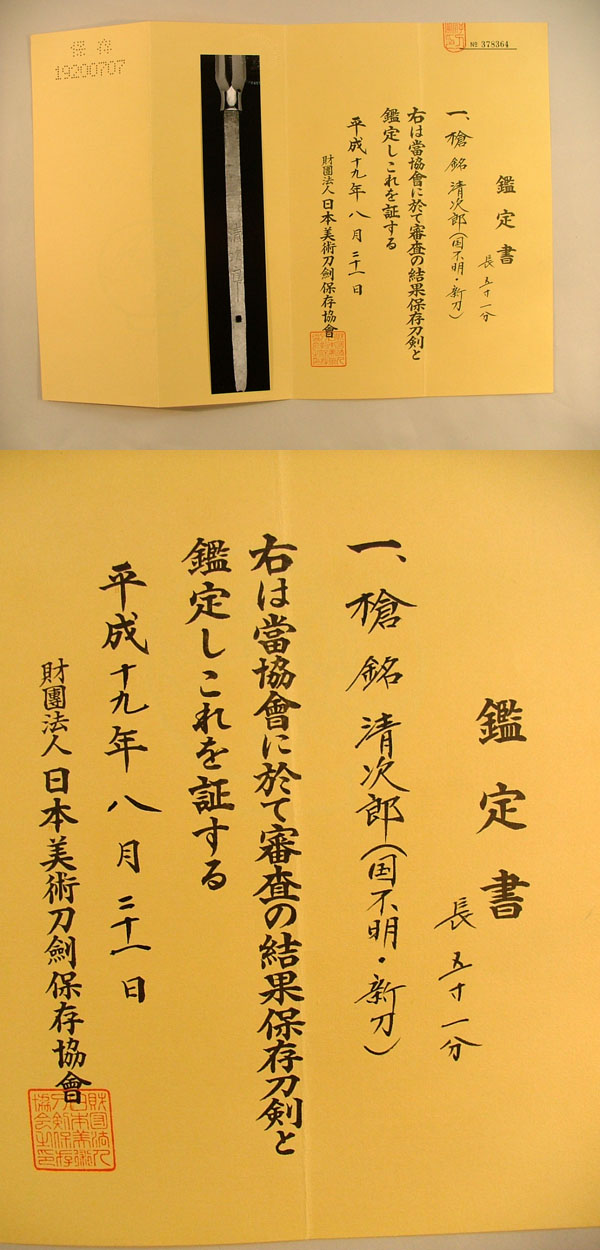 保存
19200707
№ 378364
鑑定書
長五寸一分
一、槍 銘 清次郎(国不明・新刀)
右は當協會に於て審査の結果保存刀剣と
鑑定しこれを証する
平成十九年八月二十一日
財團法人日本美術刀劍保存協會
鑑定書
長五寸一分
一、槍 銘 清次郎(国不明・新刀)
右は當協會に於て審査の結果保存刀剣と
鑑定しこれを証する
平成十九年八月二十一日
財團法人日本美術刀劍保存協會
財団法人
日本美術
刀剣保存
協会之印